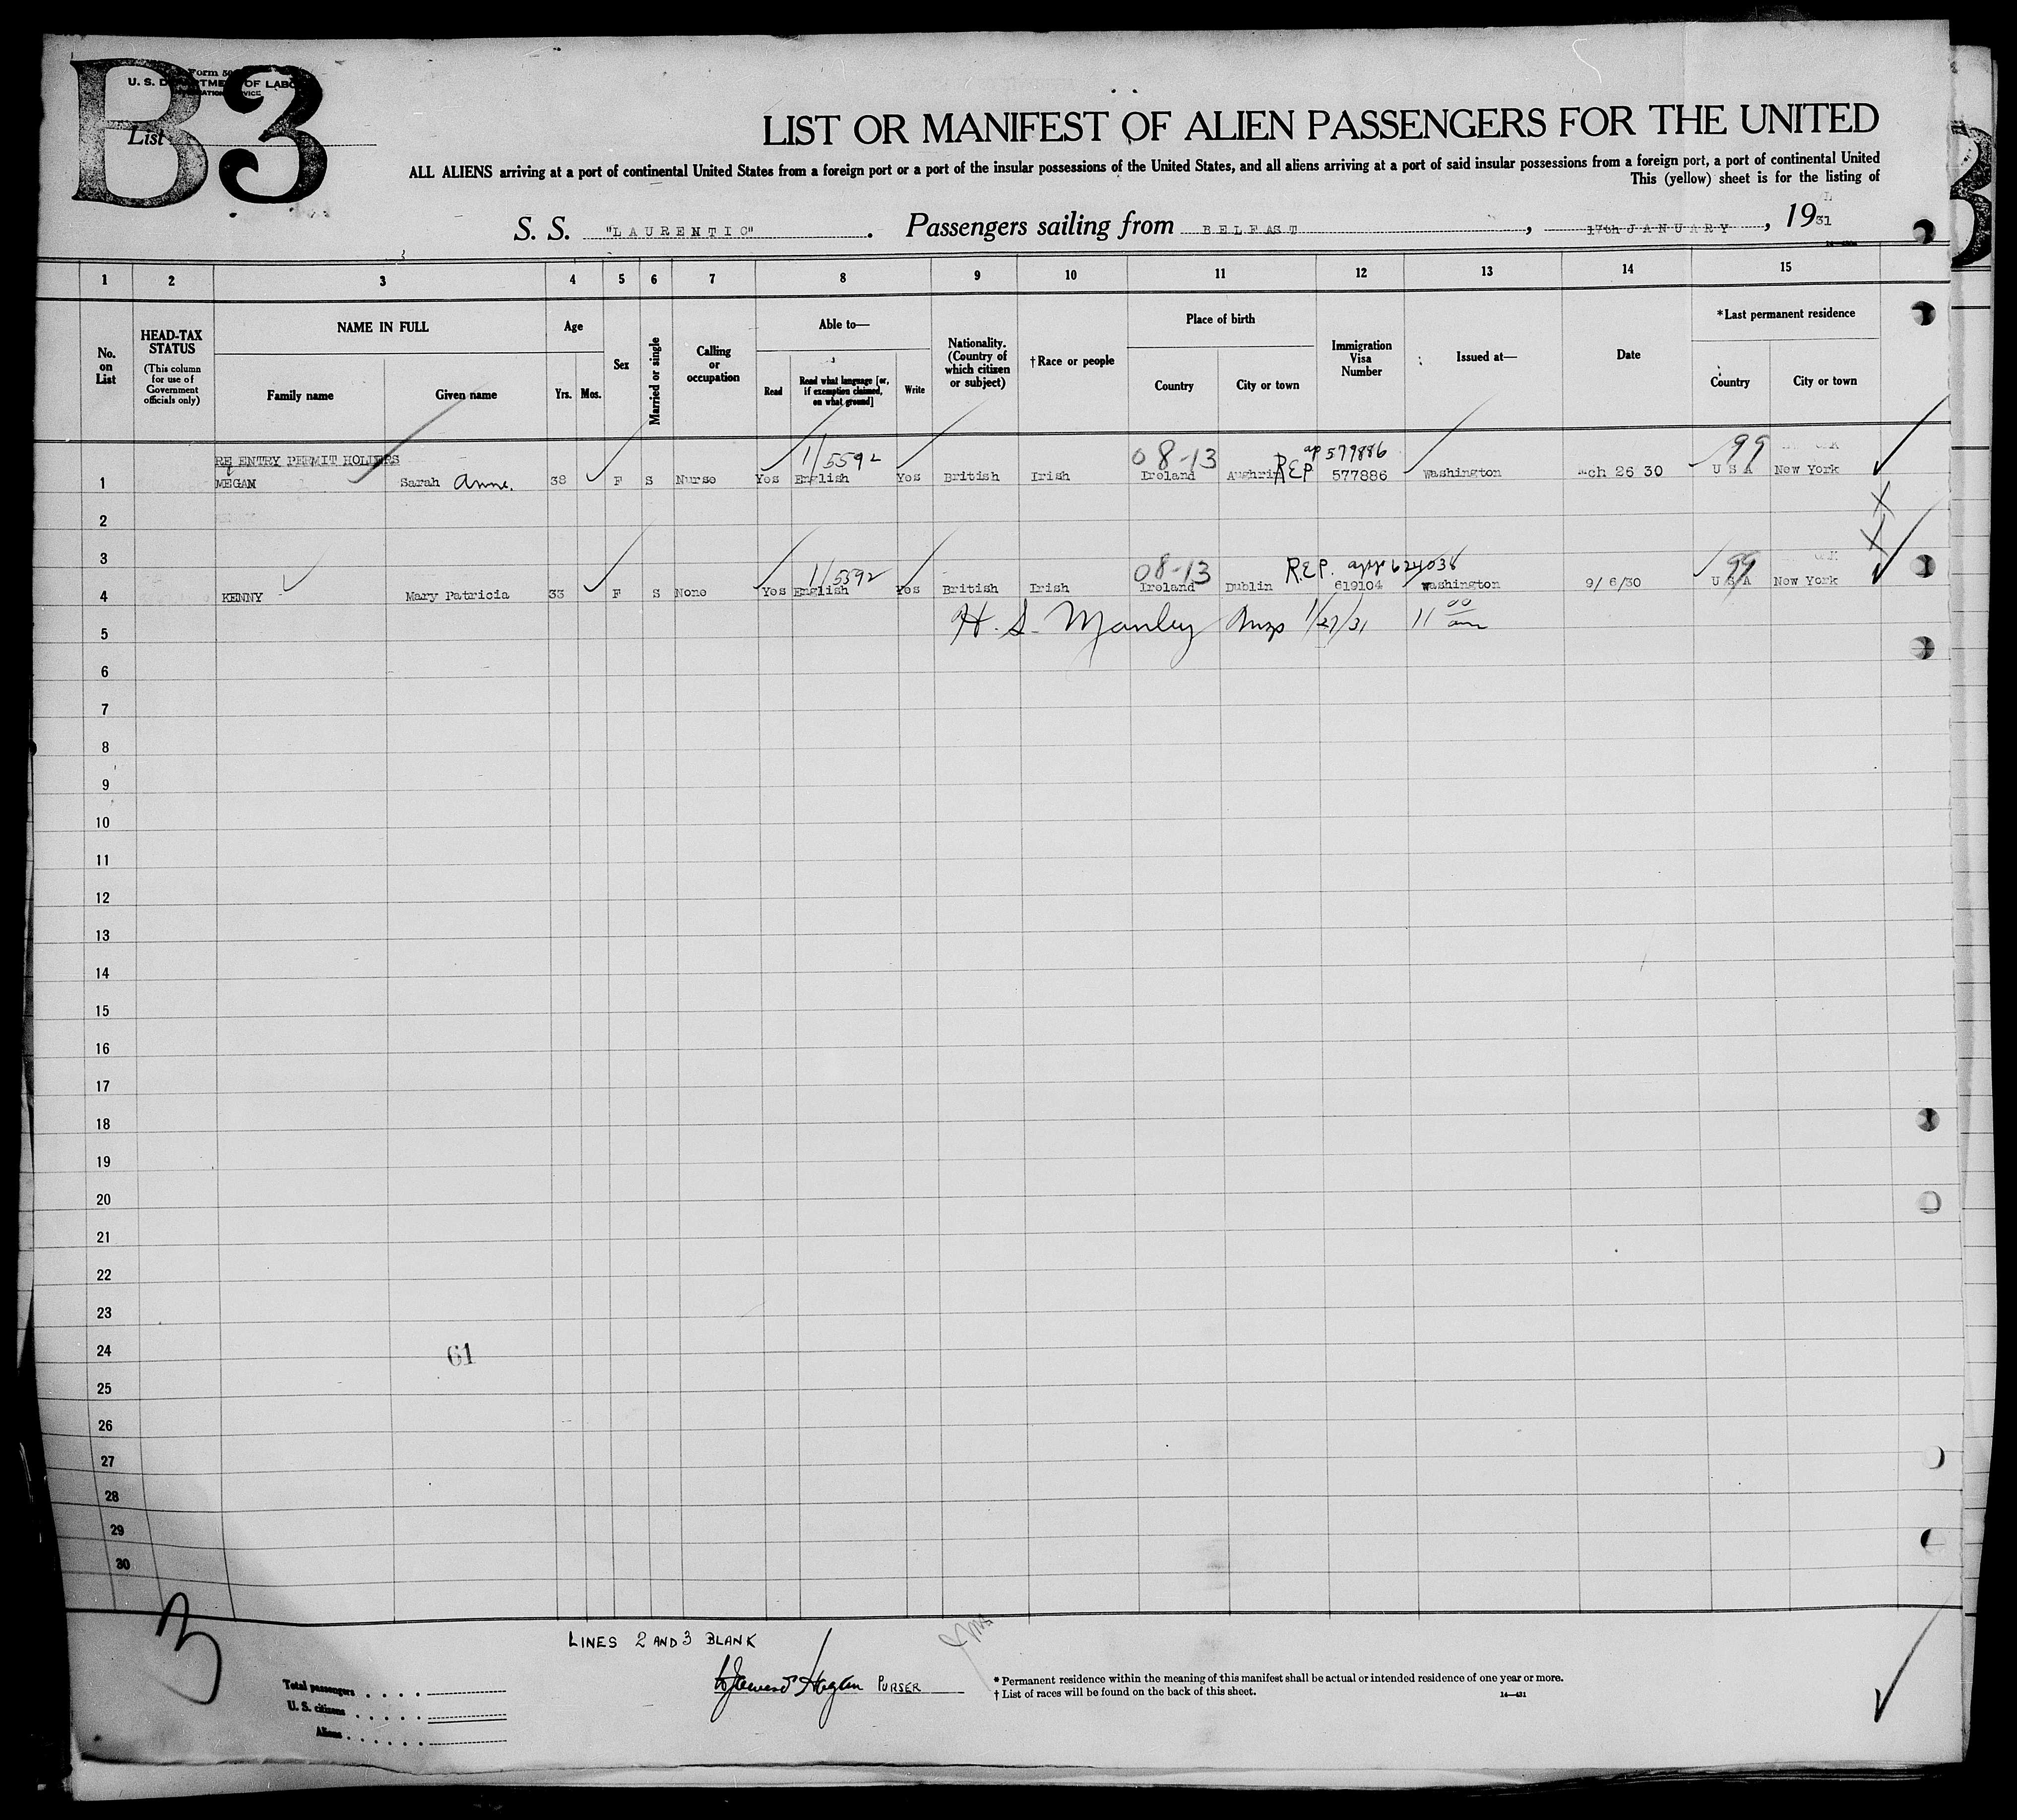 B3
Form 50
U. S. DEPARTMENT OF LABOR
List
LIST OR MANIFEST OF ALIEN PASSENGERS FOR THE UNITED
ALL ALIENS arriving at a port of continental United States from a foreign port or a port of the insular possessions of the United States, and all aliens arriving at a port of said insular possessions from a foreign port, a port of continental United
This (yellow) sheet is for the listing of
S. S. "LAURENTIC". Passengers sailing from BELFAST, 17th JANUARY, 1931
1 2 3 4 5 6 7 8 9 10 11 12 13 14 15
No. on List
HEAD-TAX STATUS (This column for use of Government officials only)
NAME IN FULL
Family name
Given name
Age
Yrs. Mos.
Sex
Married or single
Calling or occupation
Able to—
Read
Read what language [or, if exemption claimed, on what ground]
Write
Nationality. (Country of which citizen or subject)
†Race or people
Place of birth
Country
City or town
Immigration Visa Number
Issued at—
Date
*Last permanent residence
Country
City or town
RE ENTRY PERMIT HOLDERS
1/5592 08-13 ap 579886 99
1 MEGAN Sarah Anne. 38 F S Nurse Yes English Yes British Irish Ireland Aughrim REP 577886 Washington Mch 26 30 U S A New York
2
3
1/5592 08-13 R.E.P. app 624038 99
4 KENNY Mary Patricia 33 F S None Yes English Yes British Irish Ireland Dublin 619104 Washington 9/ 6/30 U S A New York
5 H. S. Manley Insp 1/27/31 11 00 am
6
7
8
9
10
11
12
13
14
15
16
17
18
19
20
21
22
23
24 61
25
26
27
28
29
30
3
LINES 2 AND 3 BLANK
PURSER
Total passengers
U. S. citizens
Aliens
* Permanent residence within the meaning of this manifest shall be actual or intended residence of one year or more.
† List of races will be found on the back of this sheet.
14—431